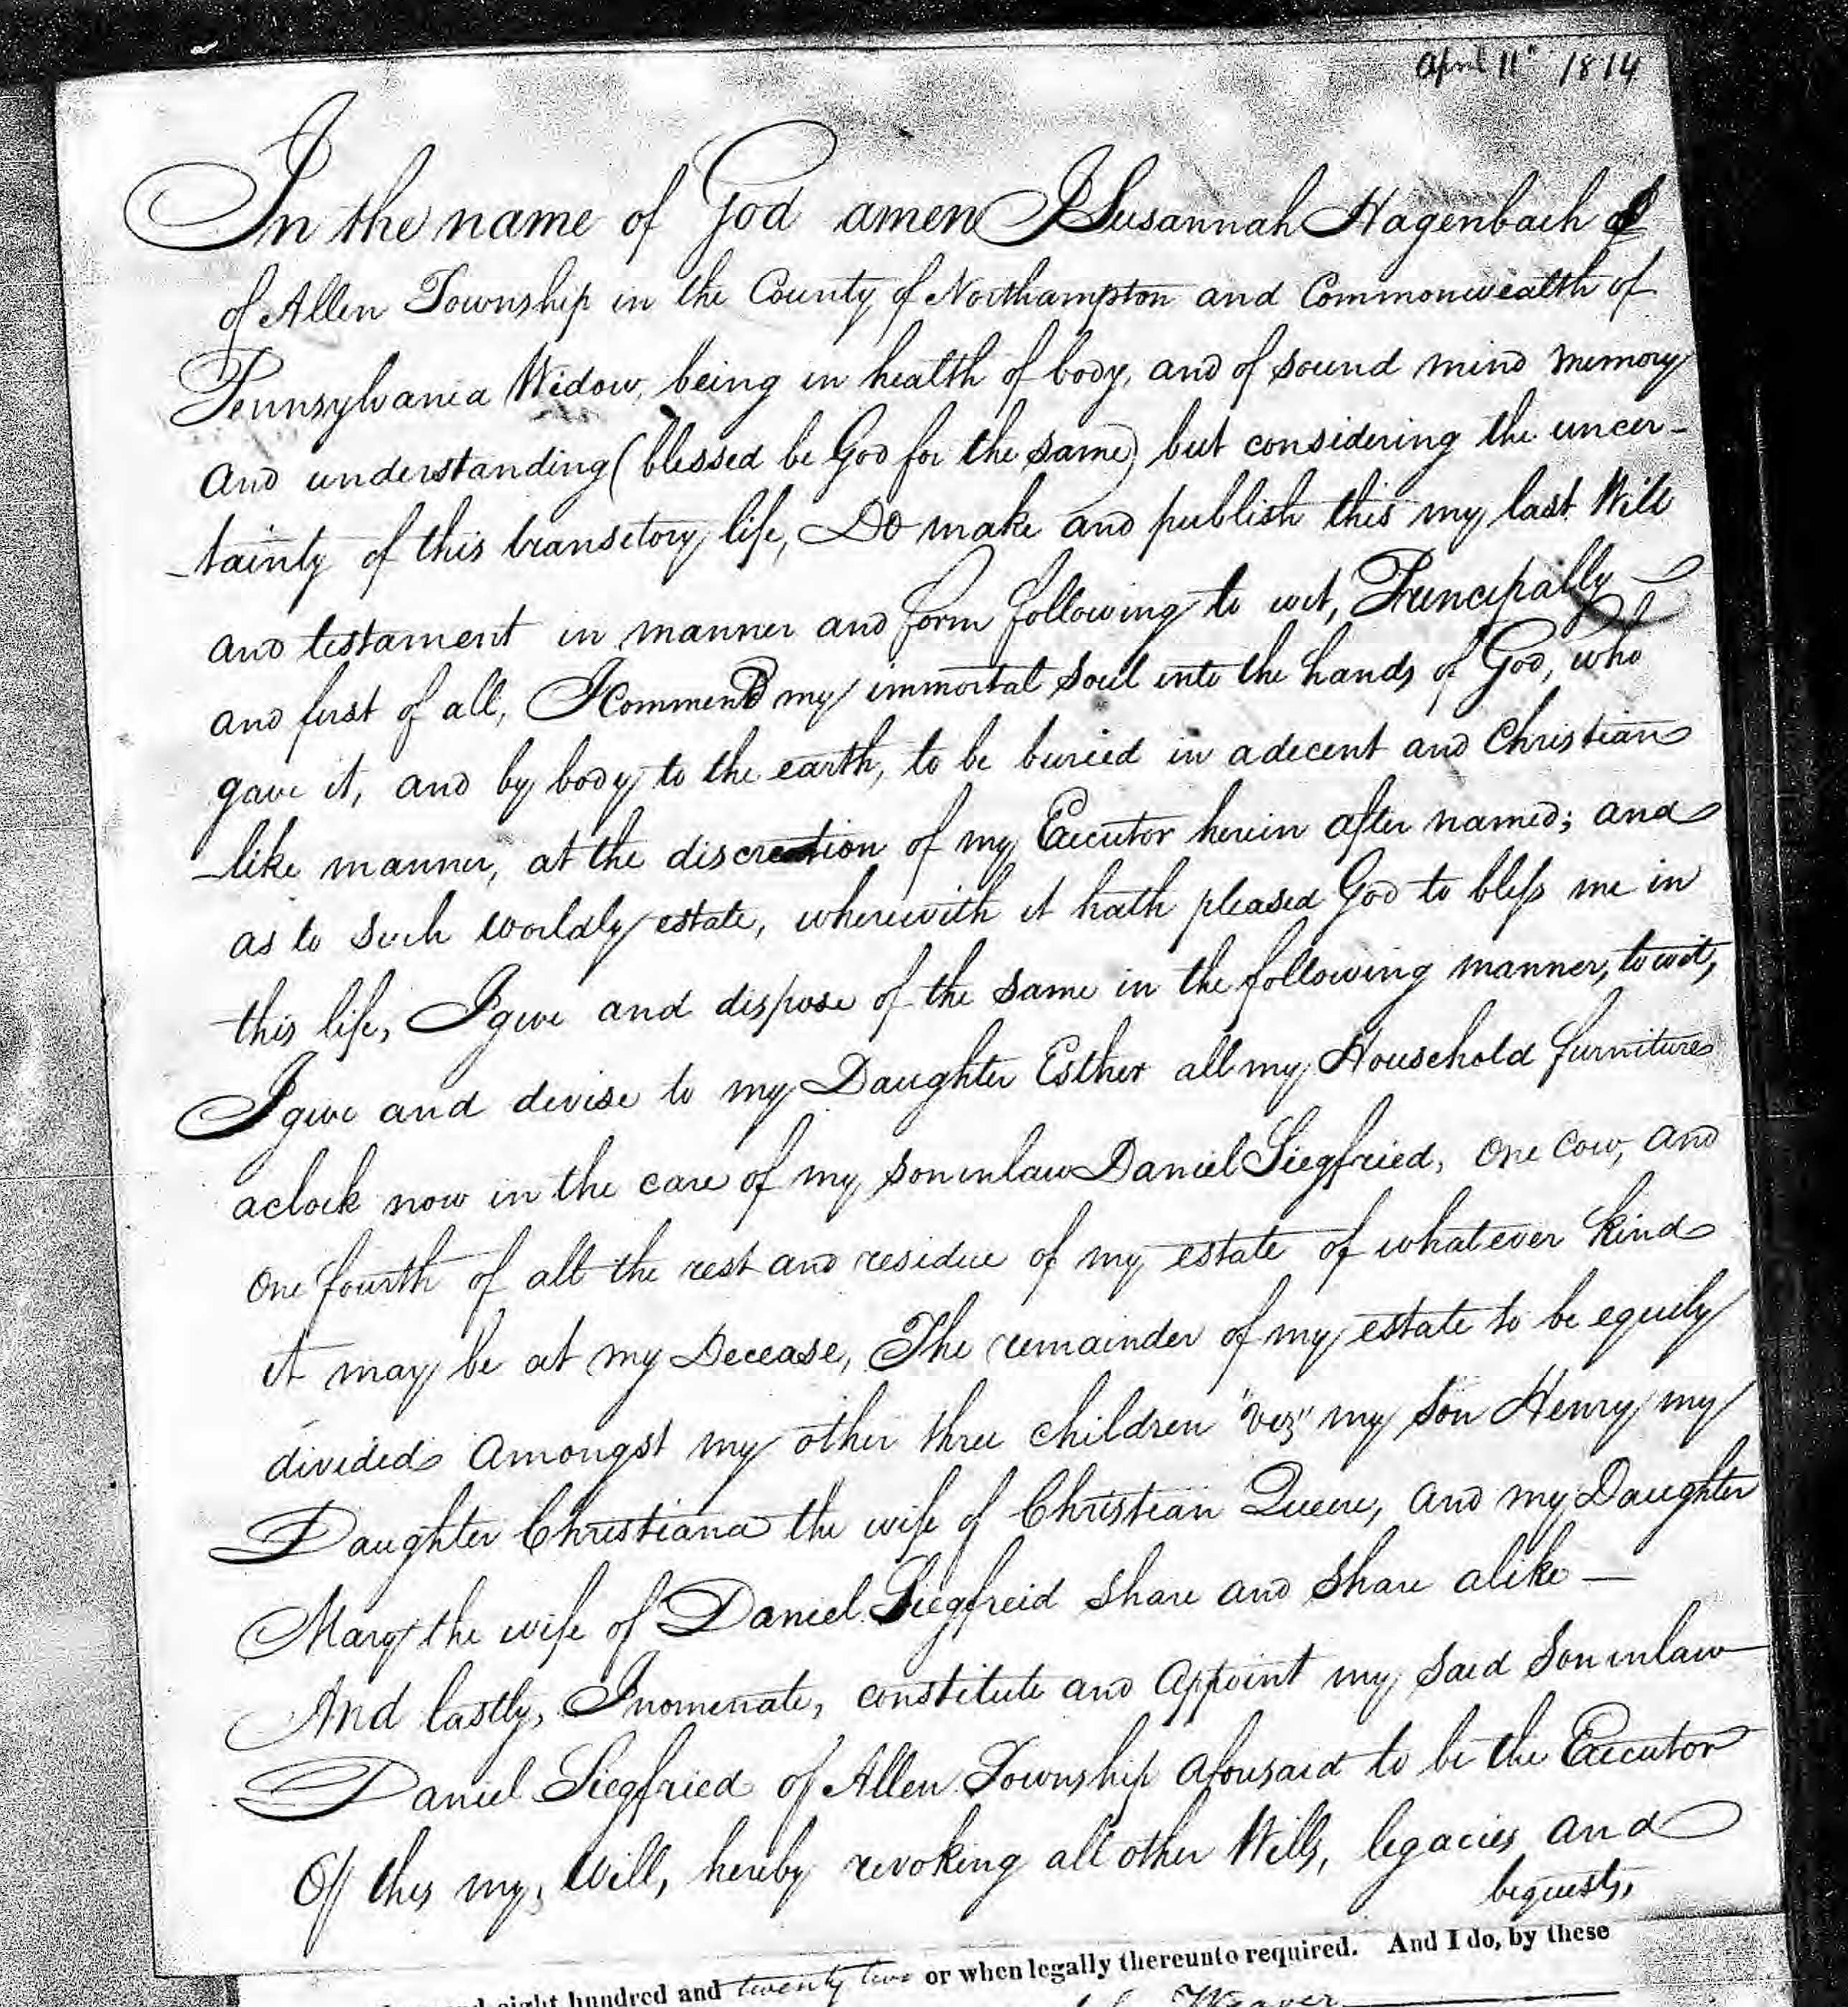 April 11th 1814
In the name of God amen I Susannah Hagenbach of
of Allen Township in the County of Northampton and Commonwealth of
Pennsylvania Widow, being in health of body, and of sound mind memory
and understanding (blessed be God for the same) but considering the uncer-
-tainty of this transitory life, Do make and publish this my last Will
and testament in manner and form following to wit, Principally
and first of all, I Commend my immortal soul into the hands of God, who
gave it, and by body to the earth, to be buried in a decent and Christian
-like manner, at the discreation of my Executor herein after named; and
as to such worldly estate, wherewith it hath pleased God to bless me in
this life, I give and dispose of the same in the following manner, to wit,
I give and devise to my Daughter Esther all my Household furniture
a clock now in the care of my son inlaw Daniel Siegfried, one cow, and
one fourth of all the rest and residue of my estate of whatever kind
it may be at my Decease, The remainder of my estate to be equily
divided amongst my other three children "viz" my son Henry my
Daughter Christiana the wife of Christian and my Daughter
Mary the wife of Daniel Siegfreid share and share alike —
And lastly, I nomenate, constitute and appoint my said son inlaw
Daniel Siegfried of Allen Township aforesaid to be the Executor
Of this my, Will, hereby revoking all other Wills, legacies and
bequests,
eight hundred and twenty two or when legally thereunto required. And I do, by these
Weaver